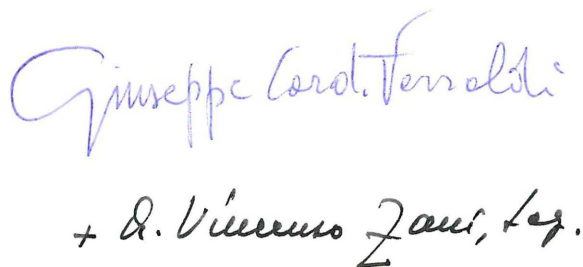 Giuseppe Card. Versaldi
+ A. Vincenzo Zani, seg.